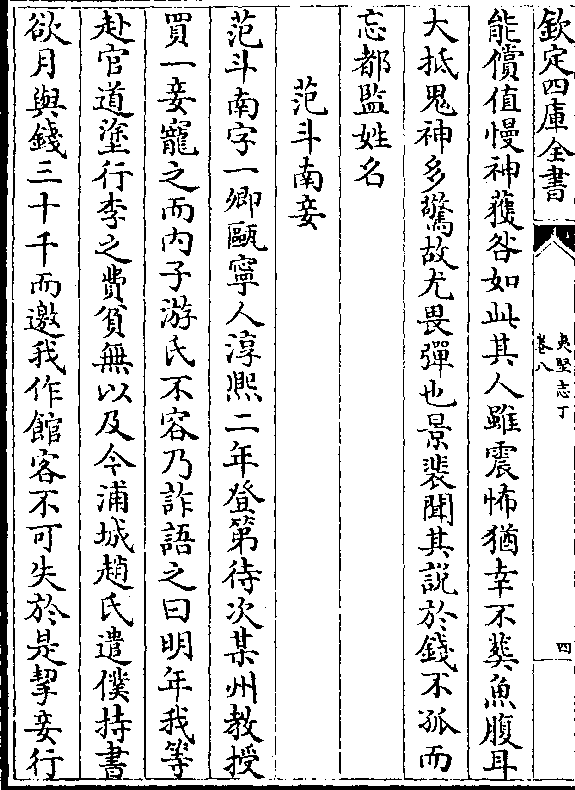 欽定四庫全書
夷堅志丁
卷八
四
能償值慢神獲咎如此其人雖震怖猶幸不葬魚腹耳
大抵鬼神多驚故尤畏彈也景裴聞其說於錢不孤而
忘都監姓名
范斗南妾
范斗南字一卿甌寧人淳熈二年登第待次某州教授
買一妾寵之而内子游氏不容乃詐語之曰明年我等
赴官道塗行李之費貧無以及今浦城趙氏遣僕持書
欲月與錢三十千而邀我作館客不可失於是挈妾行